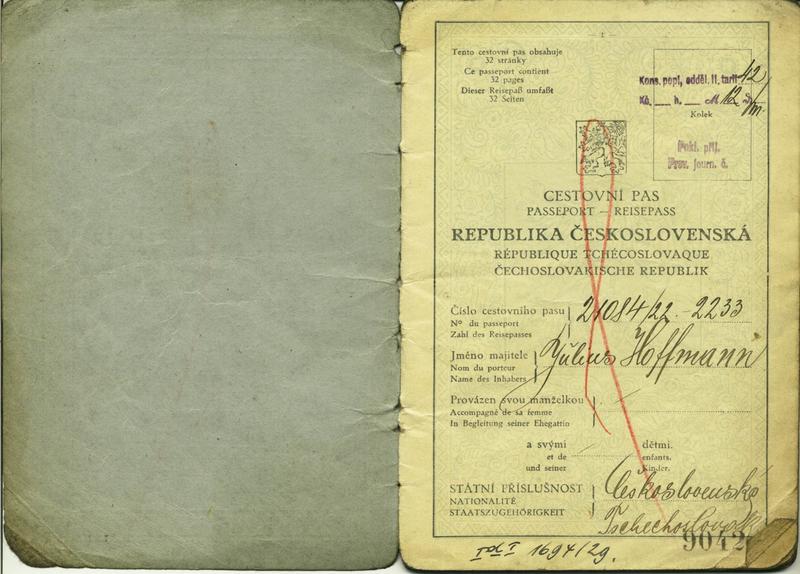 — 1 —
Tento cestovní pas obsahuje
32 stránky
Ce passeport contient
32 pages
Dieser Reisepaß umfaßt
32 Seiten
Kons. popl. odděl. II. tarif 42
Kč. h. 12
Kolek
Pokl. příj.
Prov. journ. č.
CESTOVNÍ PAS
PASSEPORT — REISEPASS
REPUBLIKA ČESKOSLOVENSKÁ
RÉPUBLIQUE TCHÉCOSLOVAQUE
ČECHOSLOVAKISCHE REPUBLIK
Číslo cestovního pasu 21084/22 - 2233
Nº du passeport
Zahl des Reisepasses
Jméno majitele Julius Hoffmann
Nom du porteur
Name des Inhabers
Provázen svou manželkou
Accompagné de sa femme
In Begleitung seiner Ehegattin
a svými dětmi.
et de enfants.
und seiner Kinder.
STÁTNÍ PŘÍSLUŠNOST Československá
NATIONALITÉ
STAATSZUGEHÖRIGKEIT
9042
1694/29.